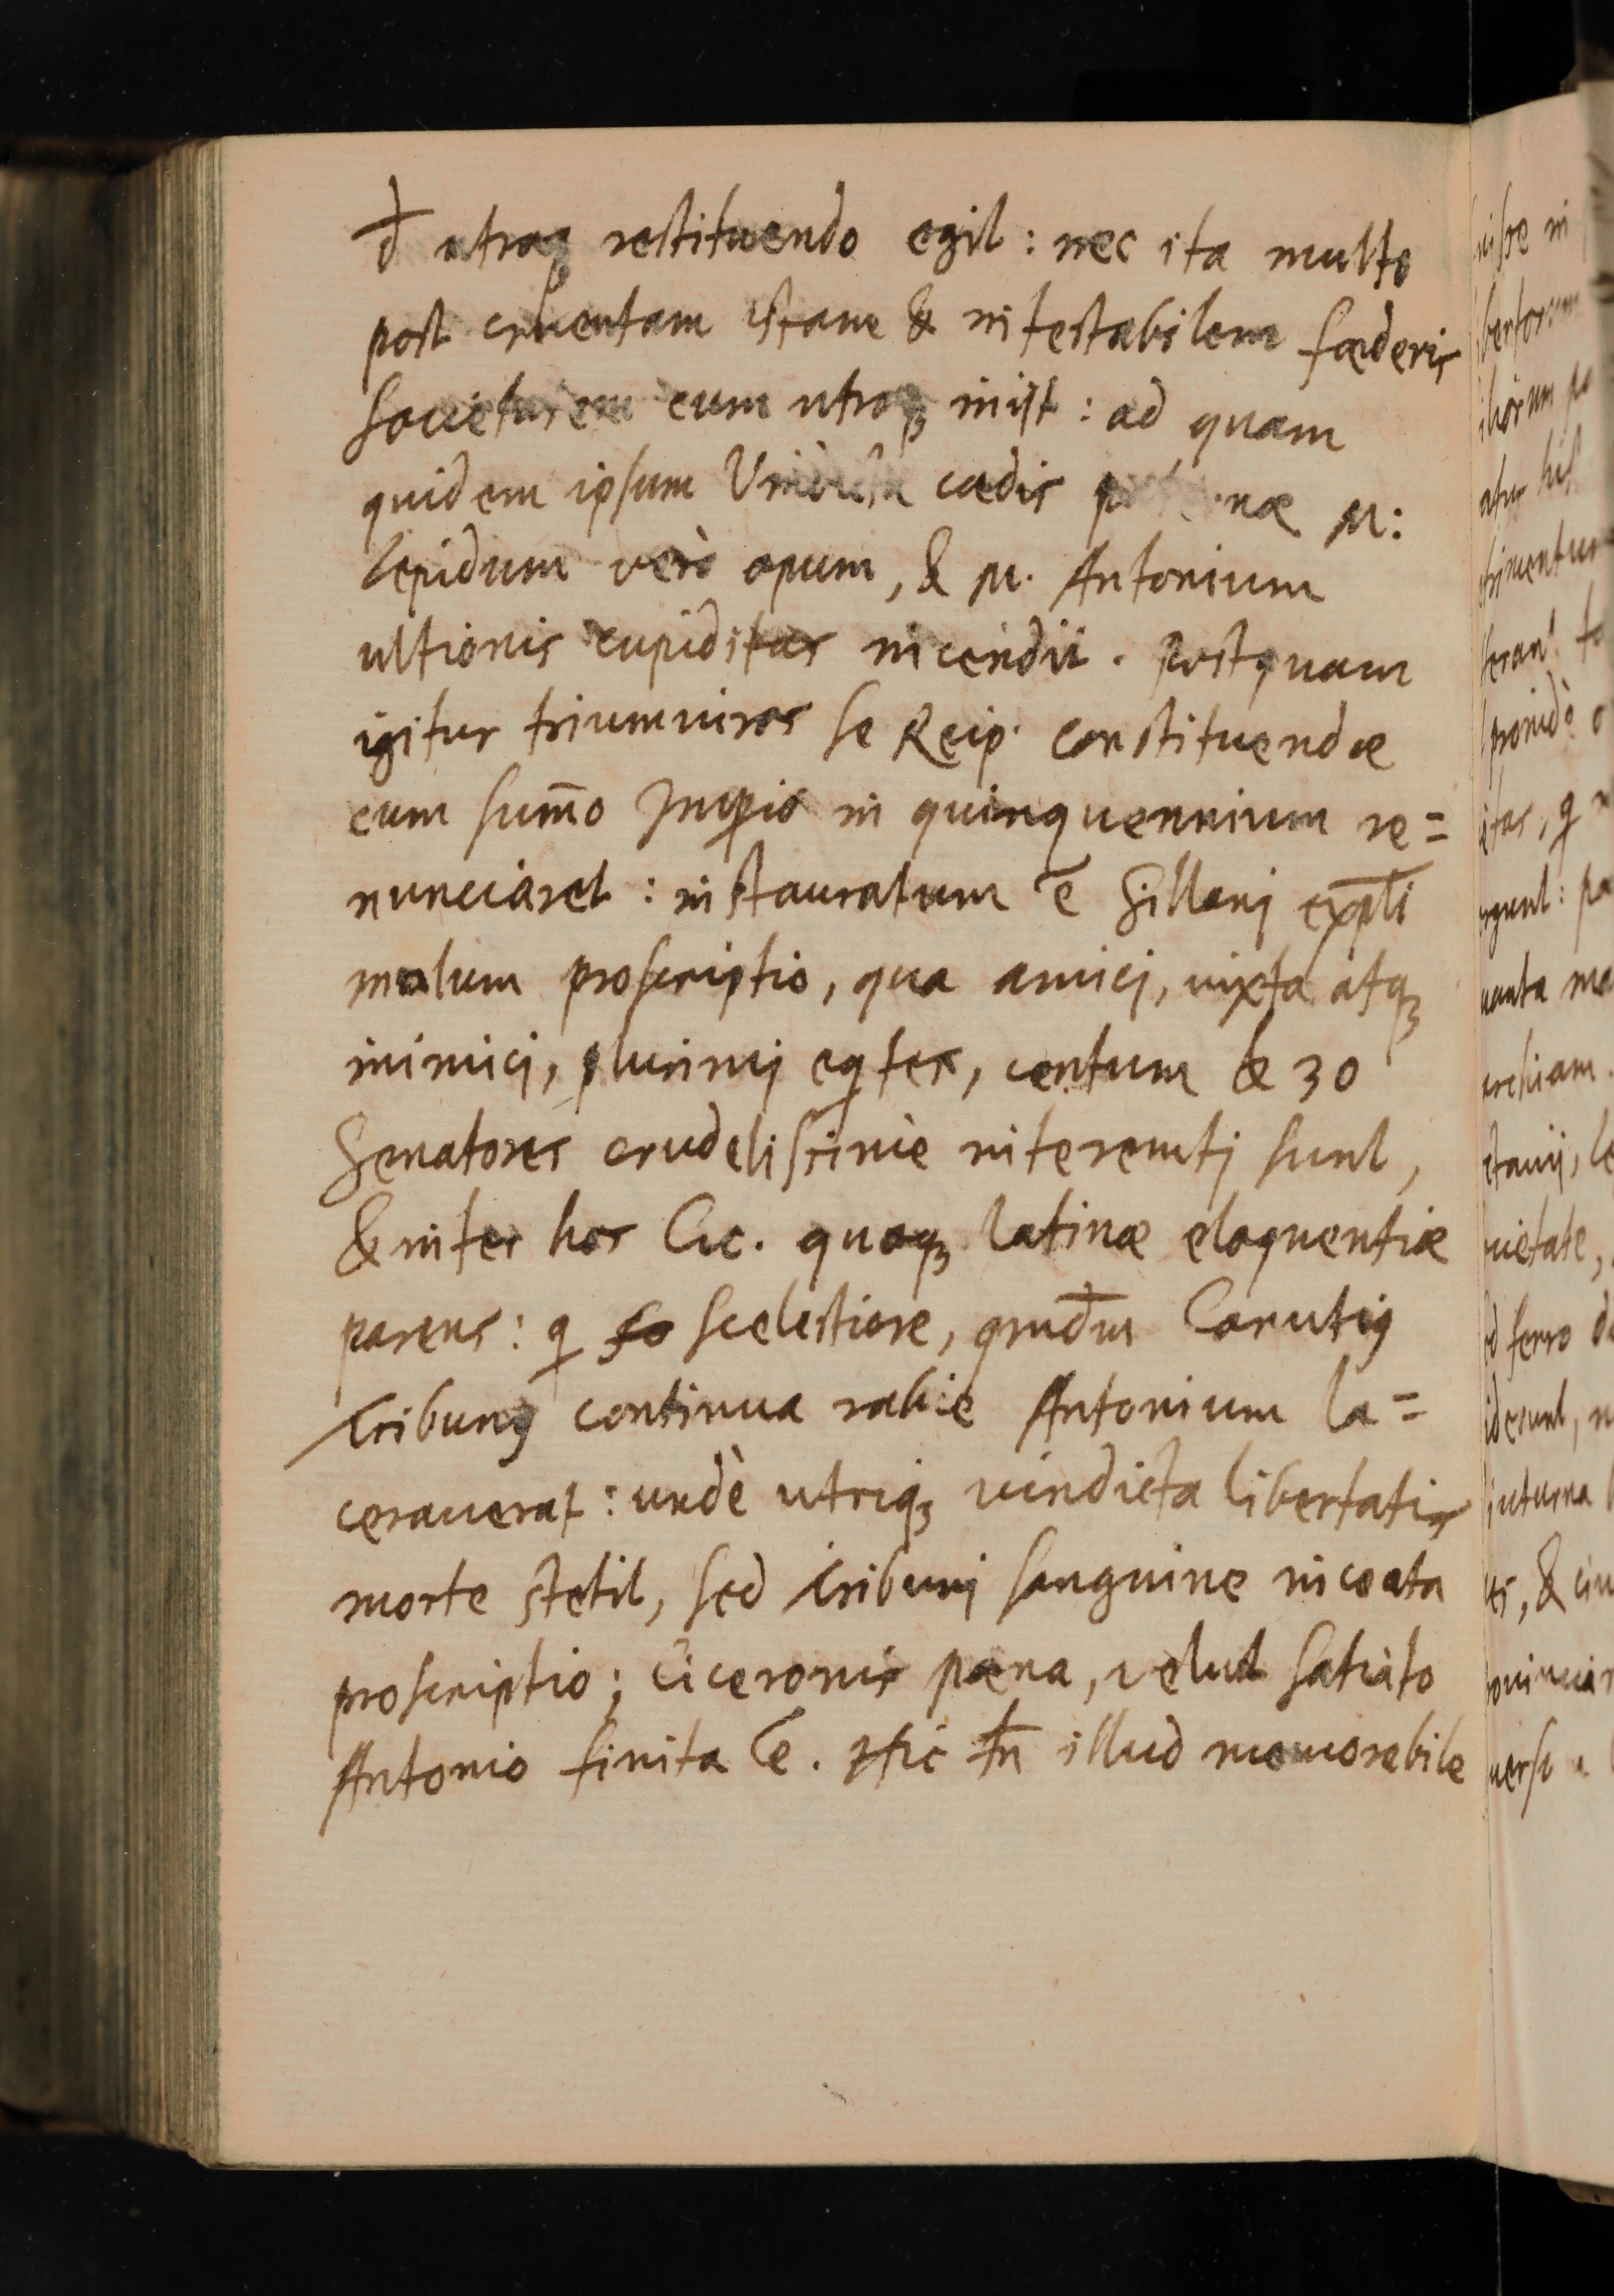 đ utroq; restituendo egit: nec ita multo
post cruentam istam & intestabilem fœderis
Societatem cum utroq; inijt: ad quam
quidem ipsum Vindicta cædis M:
Lepidum verò opum, & M. Antonium
ultionis cupiditas incendit. Postquam
igitur triumuiros se Reip. constituendæ
cum sum̄o Imperio in quinquennium re=
nunciaret: instauratum ē Sillanj expli
malum proscriptio, qua amici, iuxta atq;
inimicj, plurimj eqtes, centum & 30
Senatores crudelissimè interemtj sunt,
& inter hos Cic. quoq; latinæ eloquentiæ
parens: q scelestiore, qmđm Canutiꝰ
Tribunꝰ continua rabie Antonium la=
cerauerat: undè utriq; vindicta libertatis
morte stetit, sed Tribunj sanguine incoata
proscriptio; Ciceronis pœna, velut satiato
Antonio finita ē. Hic tn̄ illud memorabile